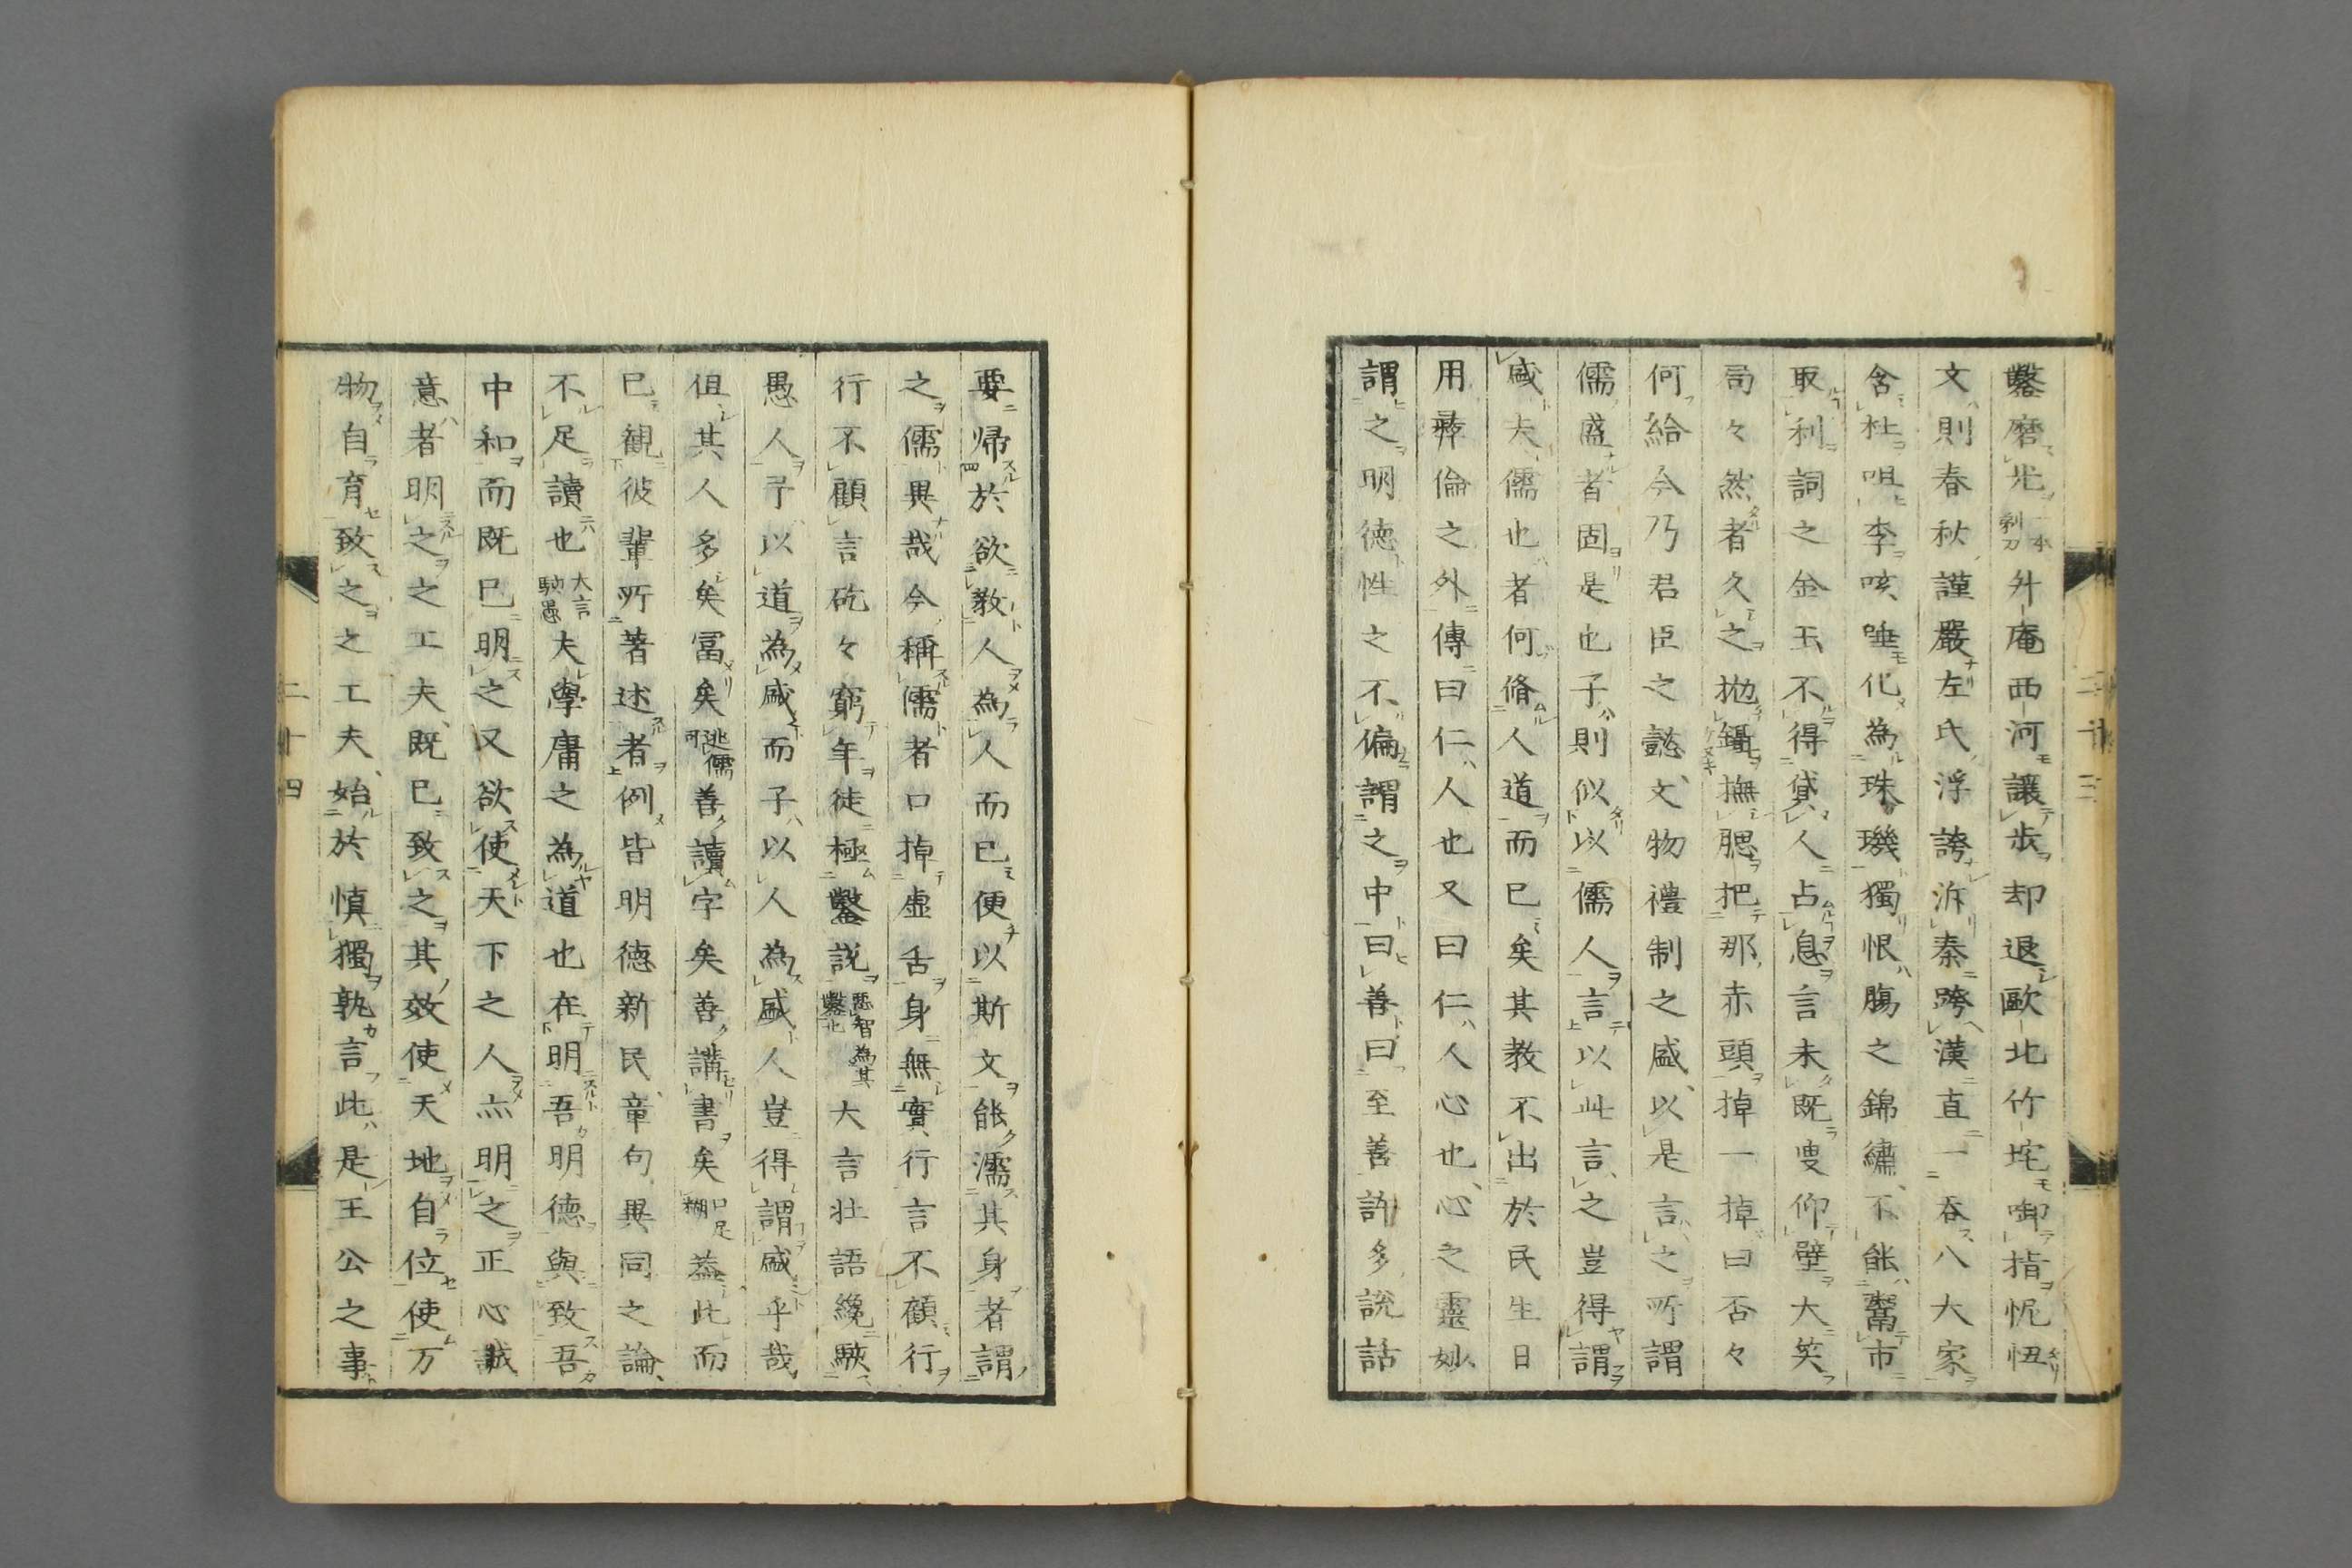 鑿磨光一本剝刀升庵西河讓歩却退歐北竹垞啣指怩忸
文則春秋謹嚴左氏浮誇泝秦跨漢直一吞八大家
含杜咀李咳唾化為珠璣獨恨腸之錦繡不能鬻市
取利詞之金玉不得貸人占息言未既叟仰壁大笑
局々然者久之拋鑷撫腮把那赤頭掉一掉曰否々
何給今乃君臣之懿文物禮制之盛以是言之所謂
儒盛者固是也子則似以儒人言以此言之豈得謂
盛夫儒也者何脩人道而已矣其教不出於民生日
用彛倫之外傳曰仁人也又曰仁人心也心之靈妙
謂之明德性之不偏謂之中曰善曰至善許多說話
二十三
要帰於欲教人為人而已便以斯文能濡其身者謂
之儒異哉今稱儒者口掉虛舌身無實行言不顧行
行不顧言矻々窮年徒極鑿說惡智為其鑿也大言壯語纔駭
愚人予以道為盛而子以人為盛人豈得謂盛乎哉
但其人多矣冨矣逃儒可善讀字矣善講書矣口足糊蓋此而
已觀彼輩所著述者例皆明德新民章句異同之論
不足讀也大言駭愚夫學庸之為道也在明吾明德與致吾
中和而既已明之又欲使天下之人亦明之正心誠
意者明之之工夫既已致之其效使天地自位使万
物自育致之之工夫始於慎獨孰言此是王公之事
二十四